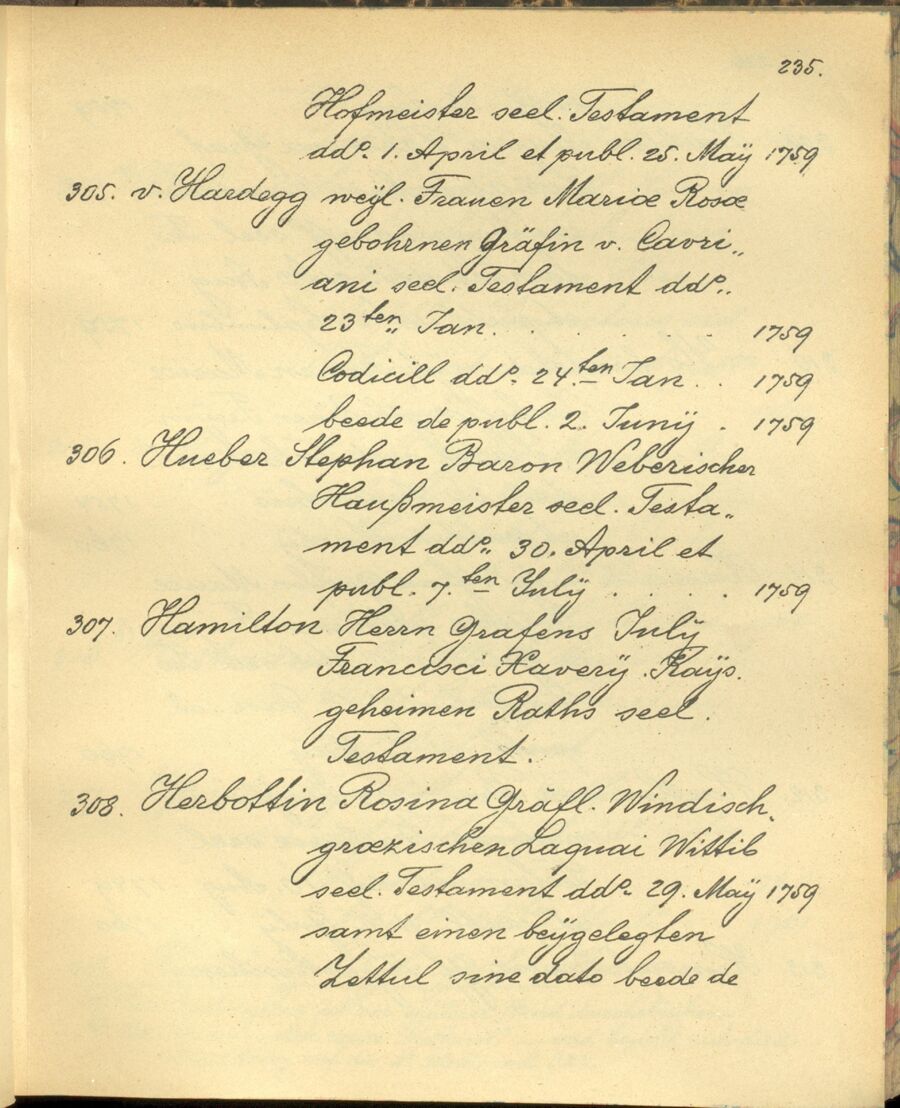 235.
Hofmeister seel. Testament
ddo. 1. April et publ. 25. Maÿ 1759
305. v. Hardegg weÿl. Frauen Mariæ Rosæ
gebohrnen Gräfin v. Cavri„
ani seel. Testament ddo..
23ten„ Jan. . . . . . 1759
Codicill ddo. 24.ten Jan . . 1759
beede de publ. 2. Junÿ . 1759
306. Hueber Stephan Baron Weberischer
Haußmeister seel. Testa„
ment ddo„ 30. April et
publ. 7.ten Julÿ . . . . 1759
307. Hamilton Herrn Grafens Julÿ
Francisci Xaverÿ . Kaÿs.
geheimen Raths seel.
Testament.
308. Herbottin Rosina Gräfl. Windisch„
græzischen Laquai Wittib
seel. Testament ddo. 29. Maÿ 1759
samt einen beÿgelegten
Zettul sine dato beede de